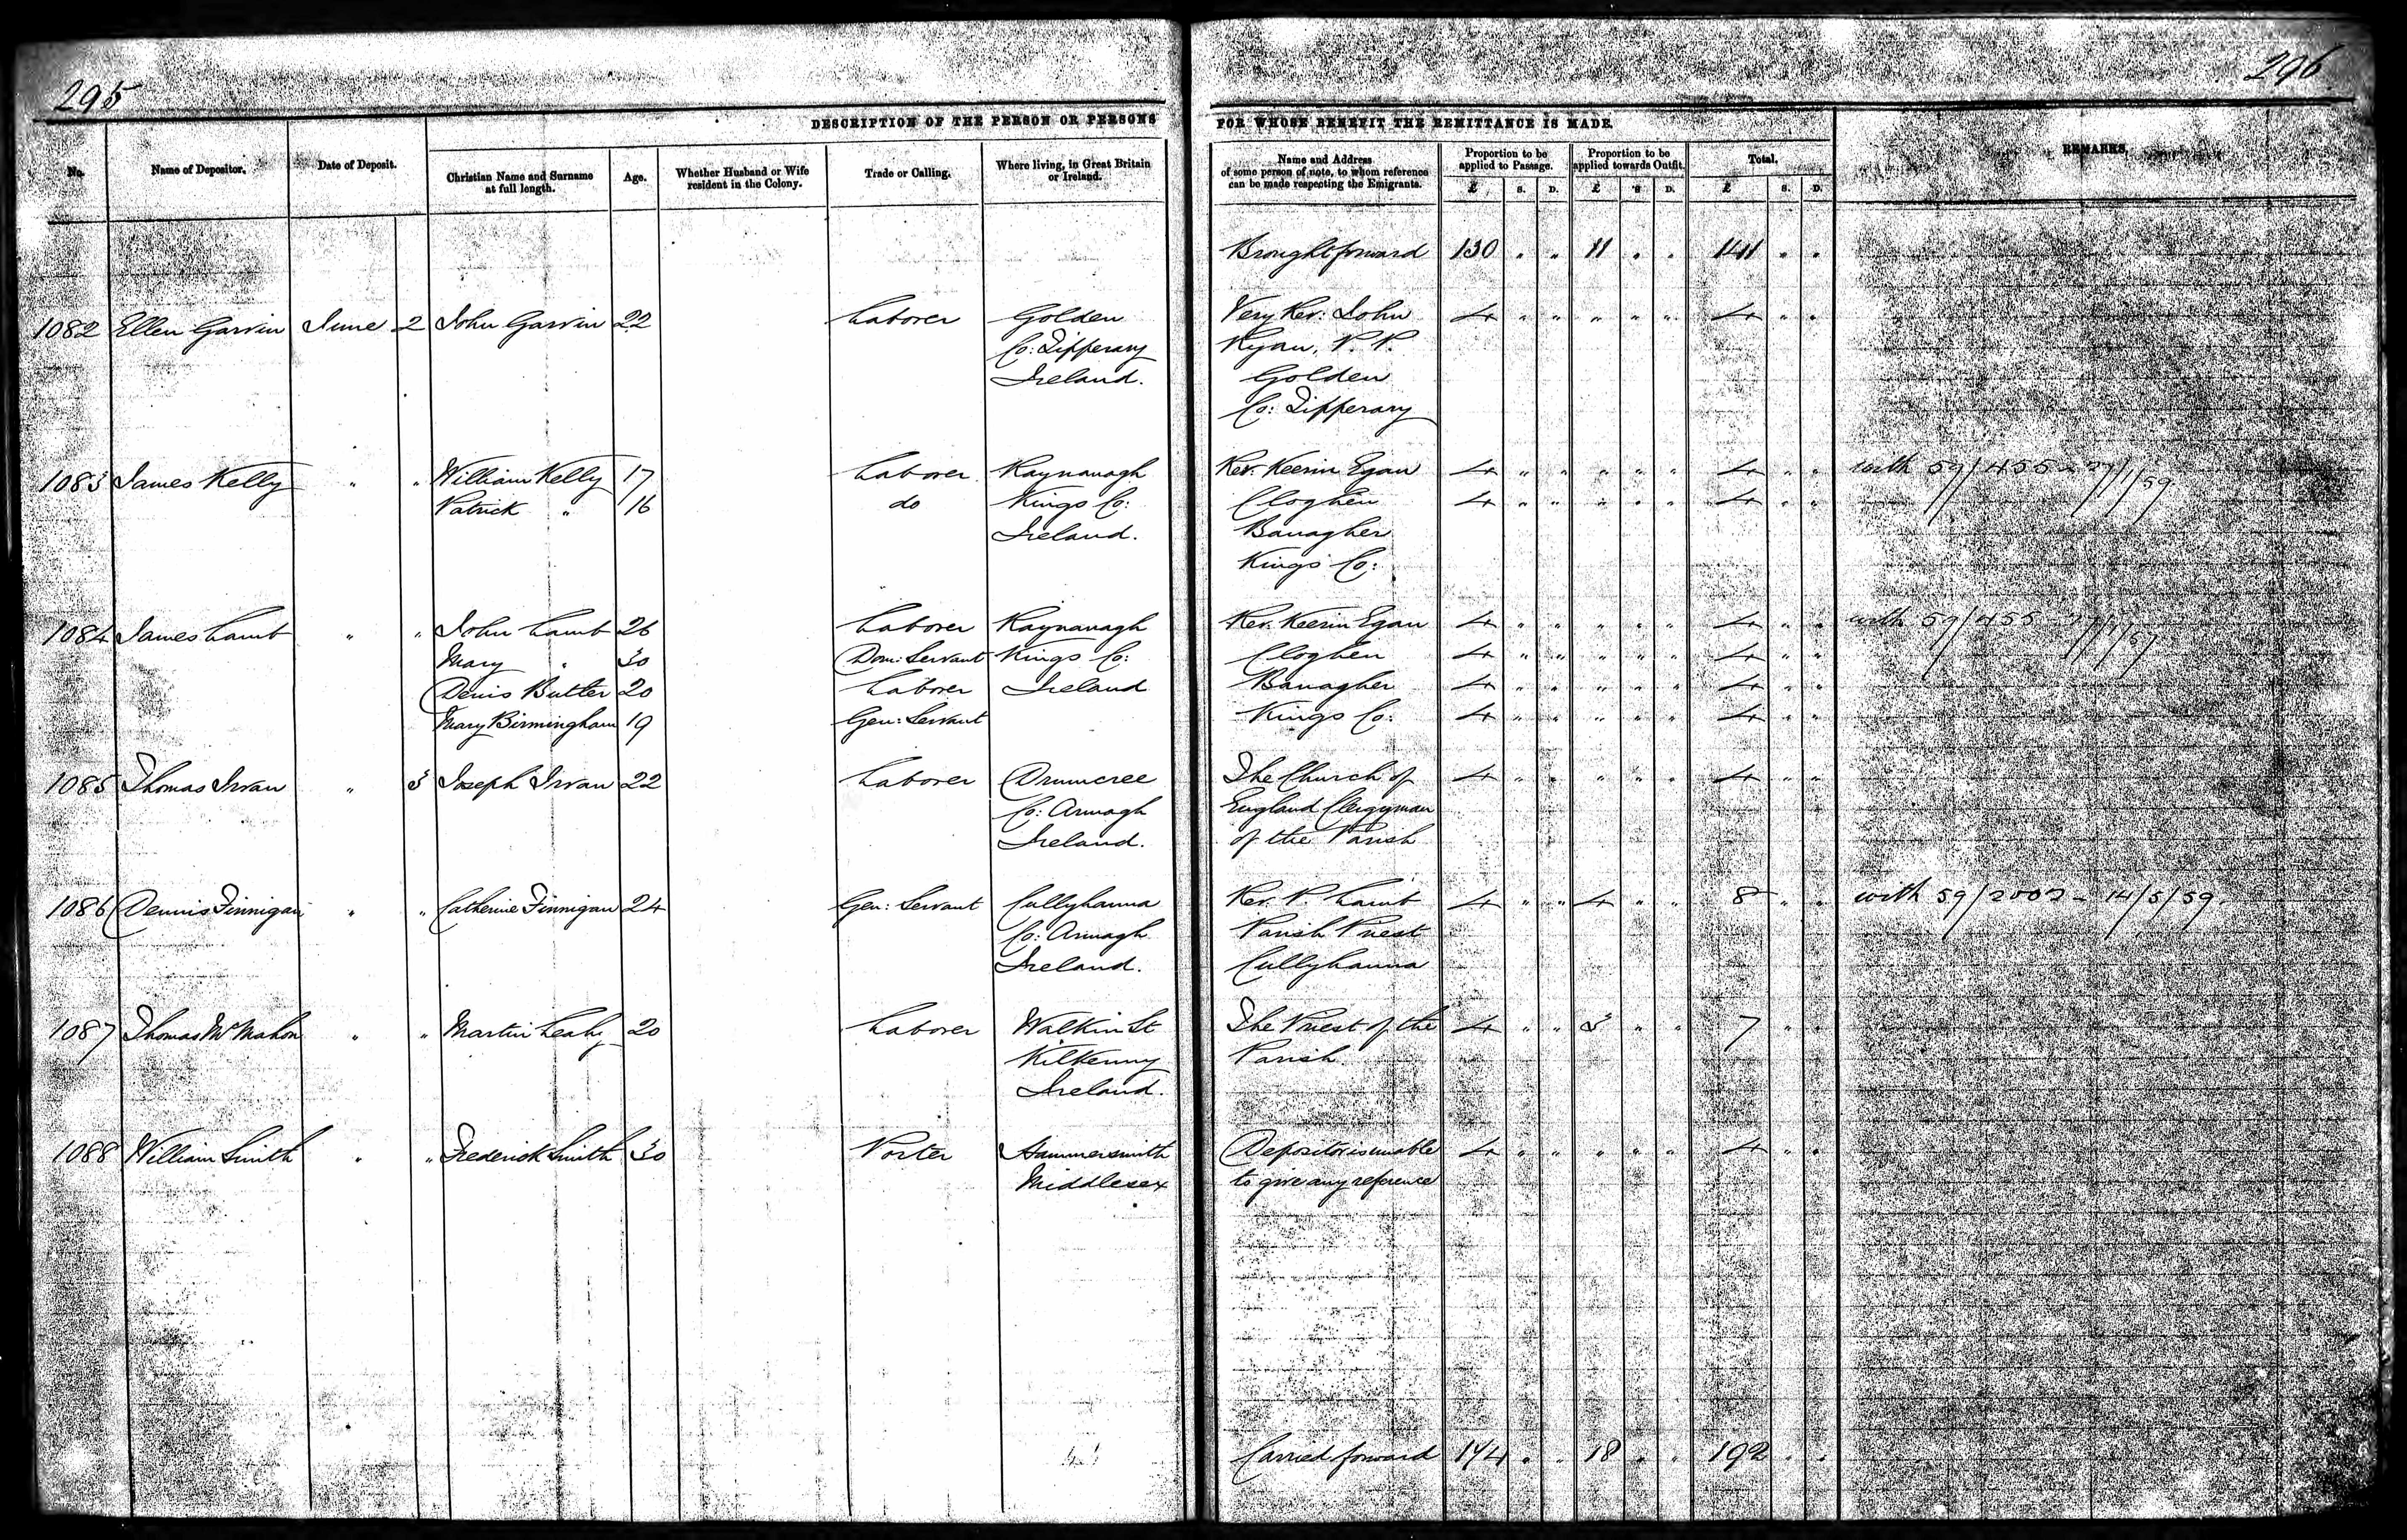 295
296
DESCRIPTION OF THE PERSON OR PERSONS FOR WHOSE BENEFIT THE REMITTANCE IS MADE.
No. Name of Depositor. Date of Deposit. Christian Name and Surname at full length. Age. Whether Husband or Wife resident in the Colony. Trade or Calling. Where living, in Great Britain or Ireland. Name and Address of some person of note, to whom reference can be made respecting the Emigrants. Proportion to be applied to Passage. Proportion to be applied towards Outfit. Total. REMARKS.
£ S. D. £ S. D. £ S. D.
Brought forward 130 " " 11 " " 141 " "
1082 Ellen Garvin June 2 John Garvin 22 Laborer Golden Very Rev: John 4 " " " " " 4 " "
Co: Tipperary Ryan, P.P.
Ireland. Golden
Co: Tipperary
1083 James Kelly " " William Kelly 17 Laborer Raynanagh Rev. Keerin Egan 4 " " " " " 4 " " with 59/455 - 27/1/59
Patrick " 16 do Kings Co: Cloghen 4 " " " " " 4 " "
Ireland. Banagher
Kings Co:
1084 James Lamb " " John Lamb 26 Laborer Raynanagh Rev. Keerin Egan 4 " " " " " 4 " " with 59/455
Mary " 30 Dom: Servant Kings Co: Cloghen 4 " " " " " 4 " "
Denis Butler 20 Laborer Ireland Banagher 4 " " " " " 4 " "
Mary Birmingham 19 Gen: Servant Kings Co: 4 " " " " " 4 " "
1085 Thomas Irvan " 3 Joseph Irvan 22 Laborer Drumcree The Church of 4 " " " " " 4 " "
Co: Armagh England Clergyman
Ireland. of the Parish
1086 Dennis Finnigan " " Catherine Finnigan 24 Gen: Servant Cullyhanna Rev. P. Lamb 4 " " 4 " " 8 " " with 59/2002 - 14/5/59.
Co: Armagh Parish Priest
Ireland. Cullyhanna
1087 Thomas McMahon " " Martin Leahy 20 Laborer Walkin St The Priest of the 4 " " 3 " " 7 " "
Kilkenny Parish.
Ireland.
1088 William Smith " " Frederick Smith 30 Porter Hammersmith Depositor is unable 4 " " " " " 4 " "
Middlesex to give any reference
Carried forward 174 " " 18 " " 192 " "